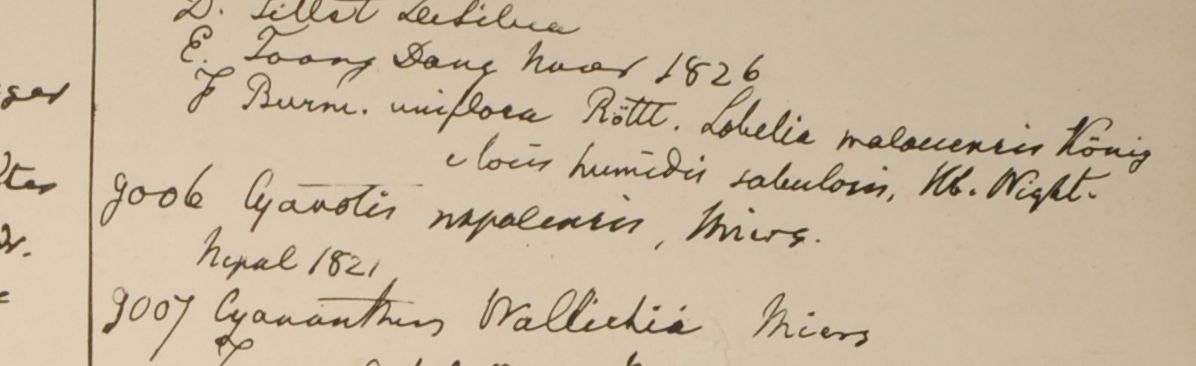 D. Sillet DeSilva
E. Toong Dong 1826
F Burm. uniflora Röttl. Lobelia malaccensis König
e locis humidis sabulosis, Hb. Wight.
9006 Cyanotis nepalensis, Miers.
Nepal 1821
9007 Cyananthus Wallichii Miers